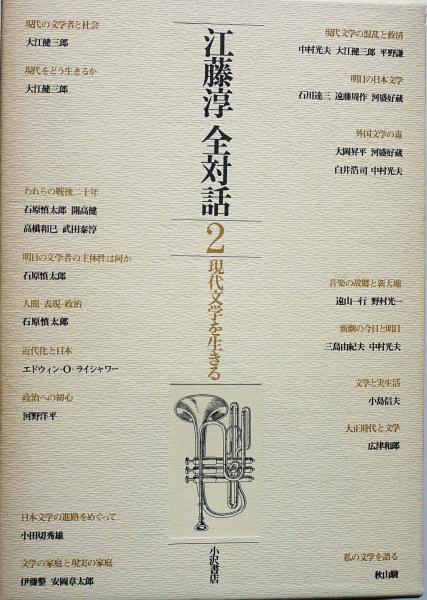 江藤淳 全対話
2
現代文学を生きる
小沢書店
現代文学の混乱と救済
中村光夫 大江健三郎 平野謙
明日の日本文学
石川達三 遠藤周作 河盛好蔵
外国文学の毒
大岡昇平 河盛好蔵
白井浩司 中村光夫
音楽の故郷と新天地
遠山一行 野村光一
新劇の今日と明日
三島由紀夫 中村光夫
文学と実生活
小島信夫
大正時代と文学
広津和郎
私の文学を語る
秋山駿
現代の文学者と社会
大江健三郎
現代をどう生きるか
大江健三郎
われらの戦後二十年
石原慎太郎 開高健
高橋和巳 武田泰淳
明日の文学者の主体性は何か
石原慎太郎
人間・表現・政治
石原慎太郎
近代化と日本
エドウィン・O・ライシャワー
政治への初心
河野洋平
日本文学の進路をめぐって
小田切秀雄
文学の家庭と現実の家庭
伊藤整 安岡章太郎